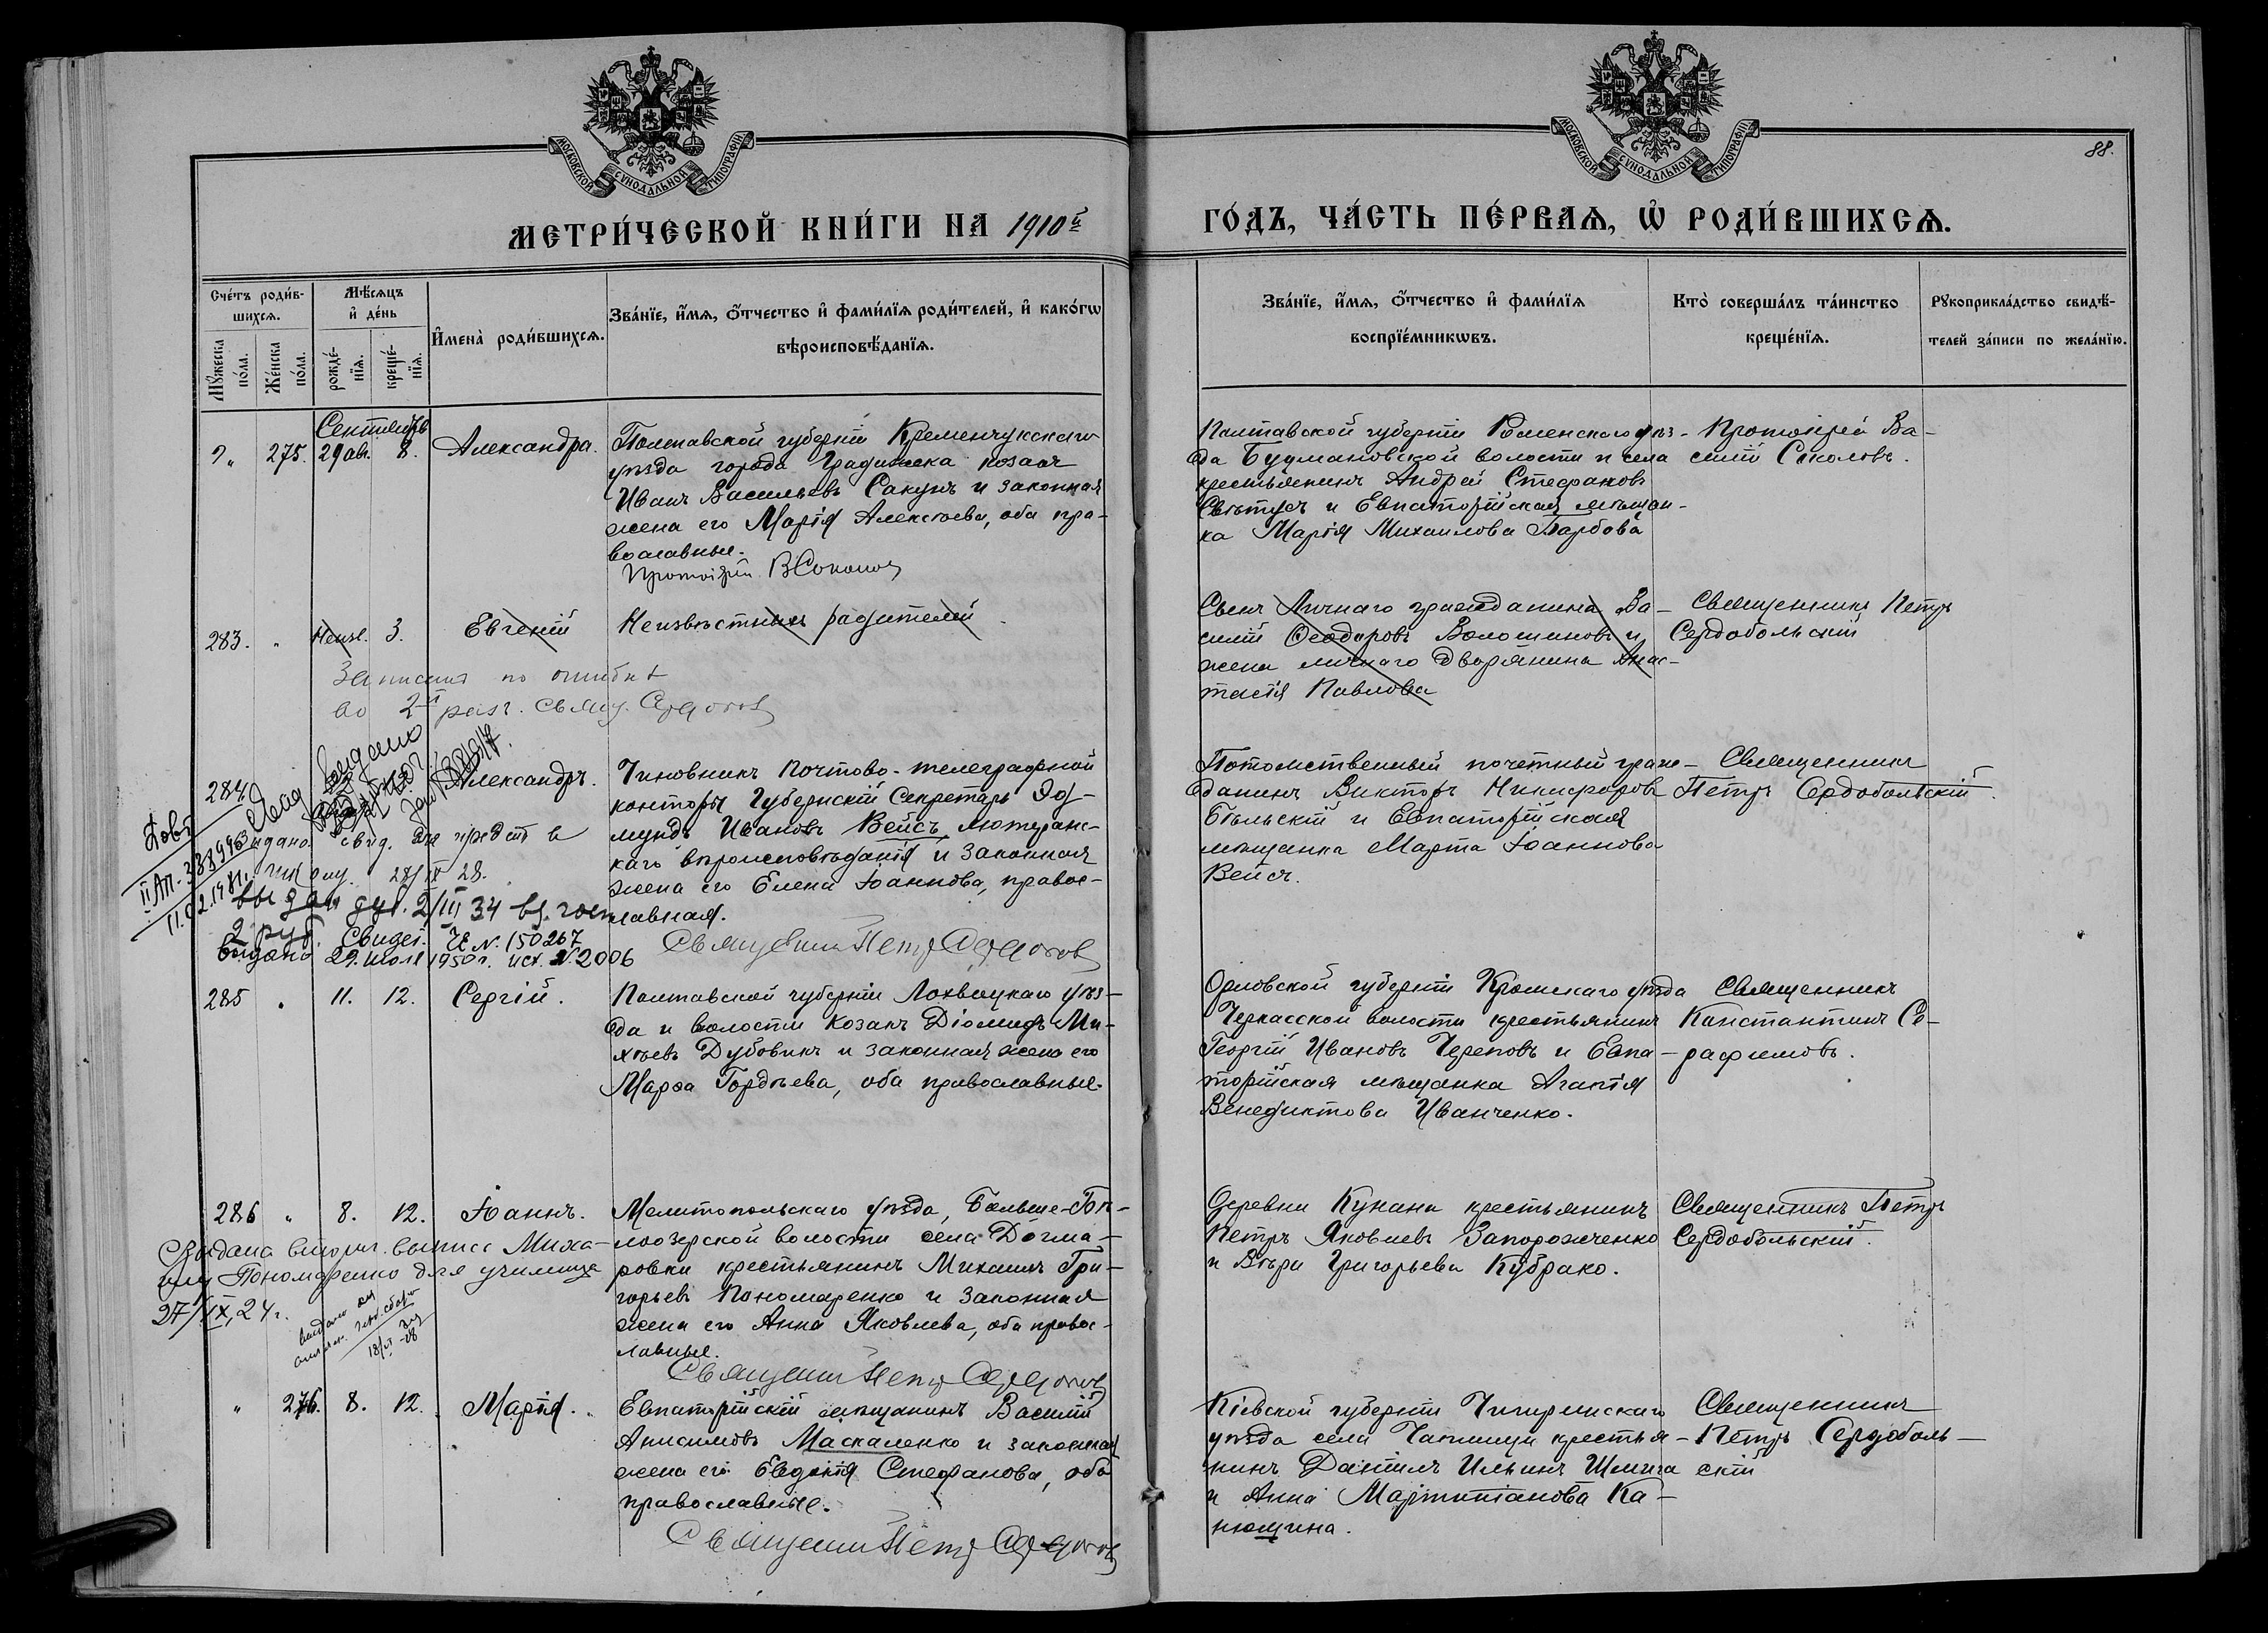 МОСКОВСКОЙ СѴНОДАЛЬНОЙ ТИПОГРАФІИ
МОСКОВСКОЙ СѴНОДАЛЬНОЙ ТИПОГРАФІИ
88.
МЕТРИ́ЧЕСКОЙ КНИ́ГИ НА 1910й
ГО́ДЪ, ЧА́СТЬ ПЕ́РВАѦ, Ѡ҆ РОДИ́ВШИХСѦ.
Сче́тъ роди́в-
шихсѧ.
Мꙋ́жеска по́ла.
Же́нска по́ла.
Мѣ́сѧцъ и҆ де́нь
рожде́-
нїѧ.
креще́-
нїѧ.
И҆мена̀ роди́вшихсѧ.
Зва́нїе, и҆́мѧ, ѻ҆́тчество и҆ фами́лїѧ роди́телей, и҆ како́гѡ
вѣроисповѣ́данїѧ.
Зва́нїе, и҆́мѧ, ѻ҆́тчество и҆ фами́лїѧ
воспрїе́мникѡвъ.
Кто̀ соверша́лъ та́инство
креще́нїѧ.
Рꙋкоприкла́дство свидѣ́-
телей за́писи по жела́нїю.
Сентябрь
275. 29 ав. 8. Александра.
Полтавской губерніи Кременчукскаго
уѣзда города Градижска козакъ
Иванъ Васильевъ Сакунъ и законная
жена его Марія Алексѣева, оба пра-
вославные.
Протоіерей В Соколов
Полтавской губерніи Роменскаго уѣз-
да Бацмановской волости и села
крестьянинъ Андрей Стефановъ
Свѣтусъ и Евпаторійская мѣщан-
ка Марія Михаилова Барбова
Протоіерей Ва-
силій Соколовъ.
283. " Неизв. 3. Евгеній
Неизвѣстныхъ родителей.
Записанъ по ошибкѣ
во 2й разъ. Свящ.
Сынъ Личнаго гражданина Ва-
силій Ѳеодоровъ Волошиновъ и
жена личнаго дворянина Анас-
тасія Павлова
Священникъ Петръ
Сердобольскій
284 Александръ.
Чиновникъ Почтово-телеграфной
конторы Губернскій Секретарь Эд-
мундъ Ивановъ Вейсъ лютеранс-
каго вѣроисповѣданія и законная
жена его Елена Іоаннова, правос-
лавная.
Священник Петр
Выдано
Выдано свид. для предст в
28/IX 28.
II АП-388996
11.02.1981г.
2/III 34
2 руб. Свидет. ЧЕ N. 150267
выдано 29. июля 1950г. исх. N 2006
Потомственный почетный граж-
данинъ Викторъ Никифоровъ
Бѣльскій и Евпаторійская
мѣщанка Марта Іоаннова
Вейсъ.
Священникъ
Петръ Сердобольскій.
285 " 11. 12. Сергій.
Полтавской губерніи Лохвицкаго уѣз-
да и волости козакъ Діомидъ Ми-
хѣевъ Дубовикъ и законная жена его
Марѳа Гордѣева, оба православные.
Орловской губерніи Кромскаго уѣзда
Черкасской волости крестьянинъ
Георгій Ивановъ Череповъ и Евпа-
торійская мѣщанка Агапія
Венедиктова Иванченко.
Священникъ
Константинъ Се-
рафимовъ.
286 " 8. 12. Іоаннъ.
Мелитопольскаго уѣзда, Больше-Бѣ-
лозерской волости села Догма-
ровки крестьянинъ Михаилъ Гри-
горьевъ Пономаренко и законная
жена его Анна Яковлева, оба правос-
лавные.
Священник Петр
Выдана вторич. выпись Миха-
илу Пономаренко для училища
27/IX, 24г.
Деревни Кунана крестьянинъ
Петръ Яковлевъ Запорожченко
и Вѣра Григорьева Кубрако.
Священникъ Петръ
Сердобольскій.
" 276. 8. 12. Марія.
Евпаторійскій мѣщанинъ Василій
Анисимовъ Маскаленко и законная
жена его Евдокія Стефанова, оба
православные.
Священник Петр
Кіевской губерніи Чигиринскаго
уѣзда села Чаплищи крестья-
нинъ Даніилъ Ильинъ Шмига
и Анна Мартиніанова Ка-
нющина.
Священникъ
Петръ Сердоболь-
скій